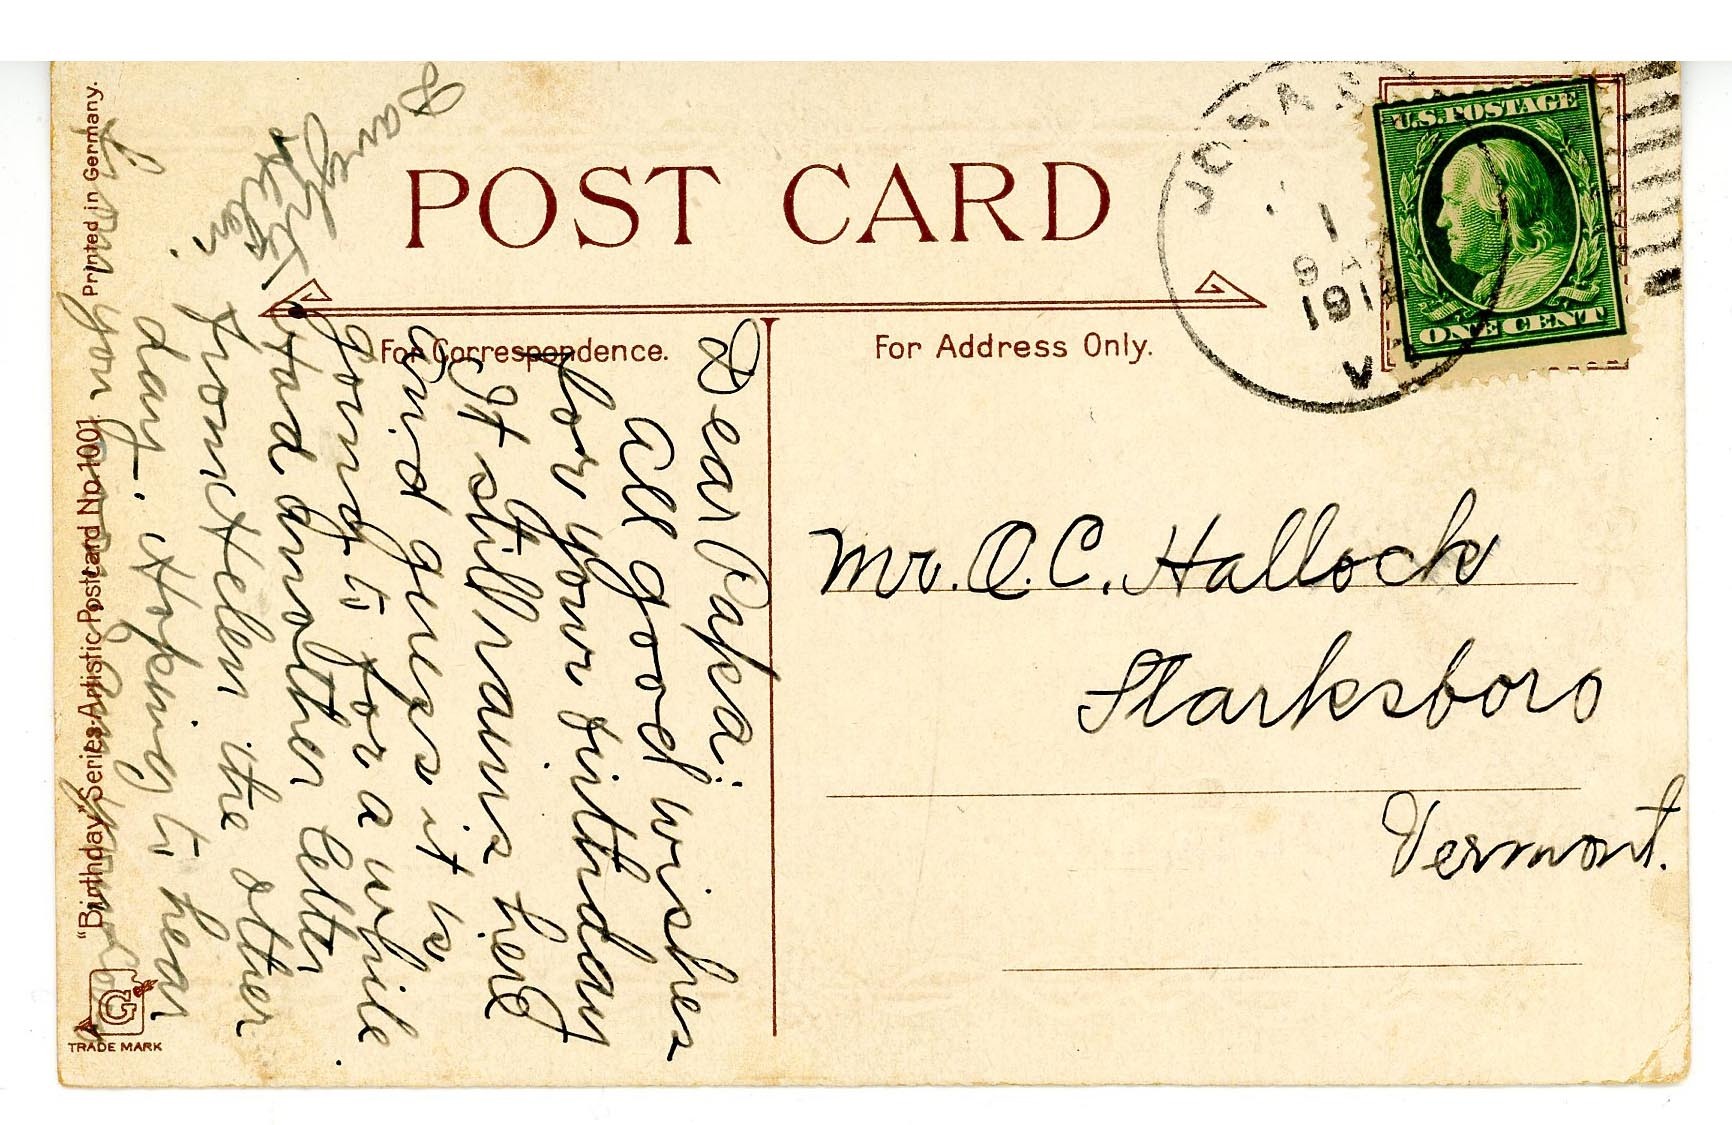 POST CARD
For Correspondence.
For Address Only.
U.S. POSTAGE
ONE CENT
JONES
1
9 A
191
V
Mr. O. C. Hallock
Starksboro
Vermont.
Dear Papa:
All good wishes
for your birthday
It still rains here
and guess it is
going to for a while
Had another letter
from Helen the other
day. Hoping to hear
from you
Helen.
"Birthday" Series. Artistic Postcard No. 1001. Printed in Germany.
G
TRADE MARK